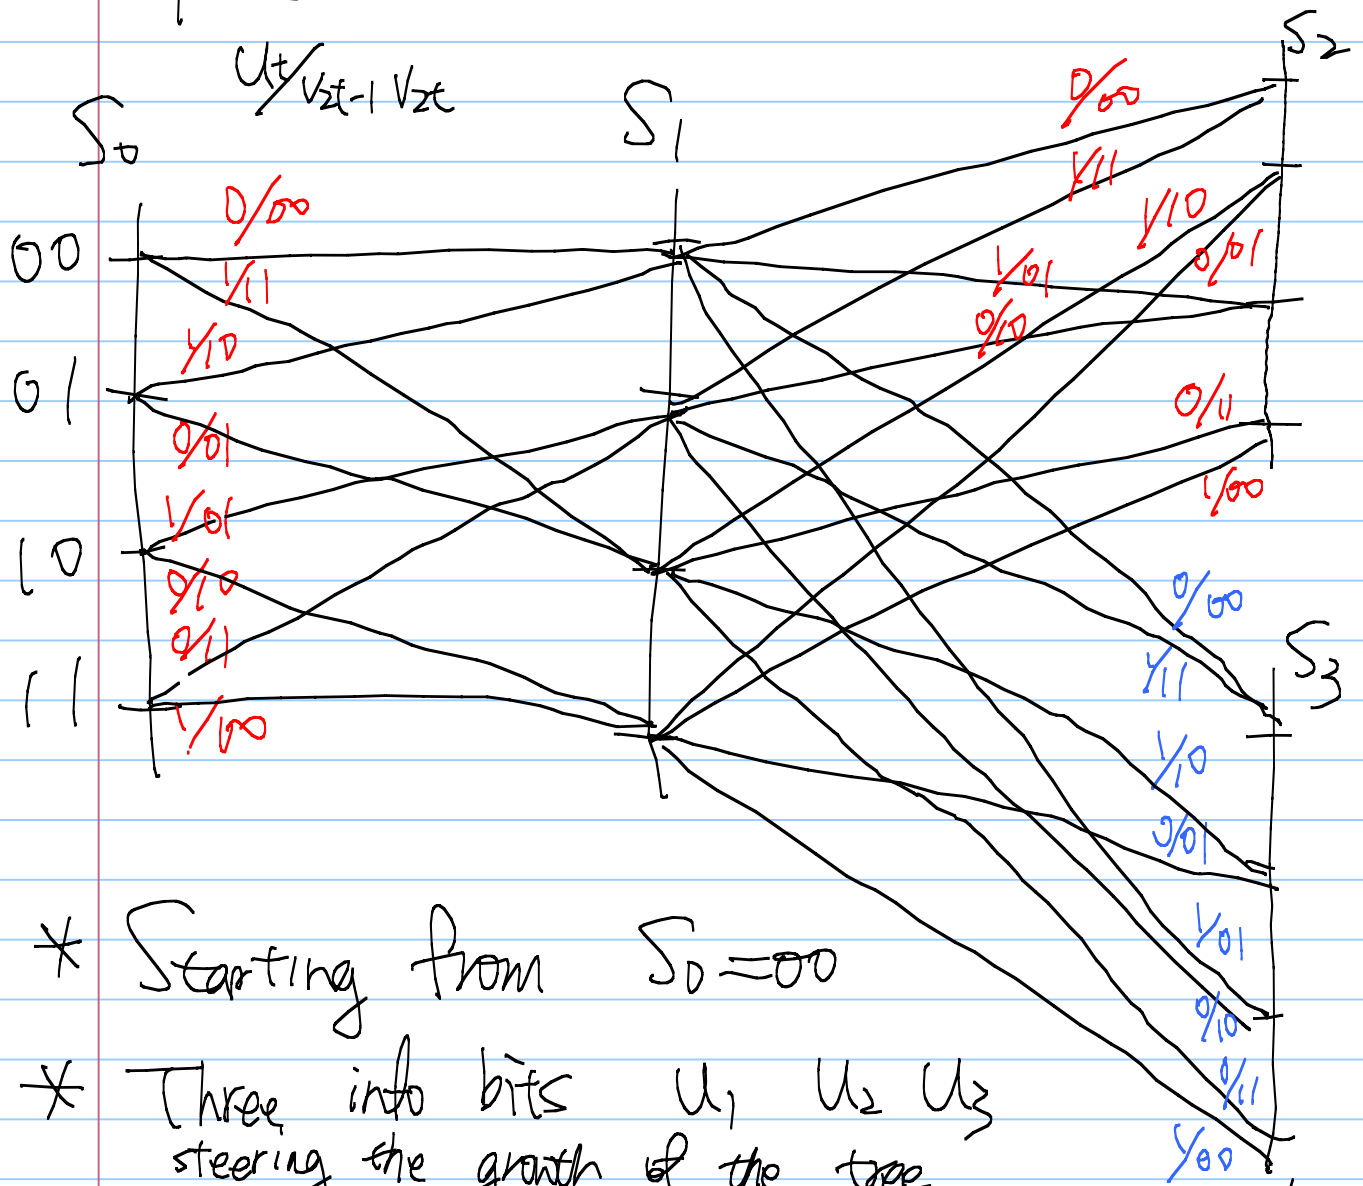 Ut/V2t-1 V2t
S2
S0
S1
0/00
1/11
1/10
0/01
1/01
0/10
0/11
1/00
00
0/00
1/11
01
1/10
0/01
10
1/01
0/10
11
0/11
1/00
S3
0/00
1/11
1/10
0/01
1/01
0/10
0/11
1/00
* Starting from S0=00
* Three info bits U1 U2 U3
steering the growth of the tree